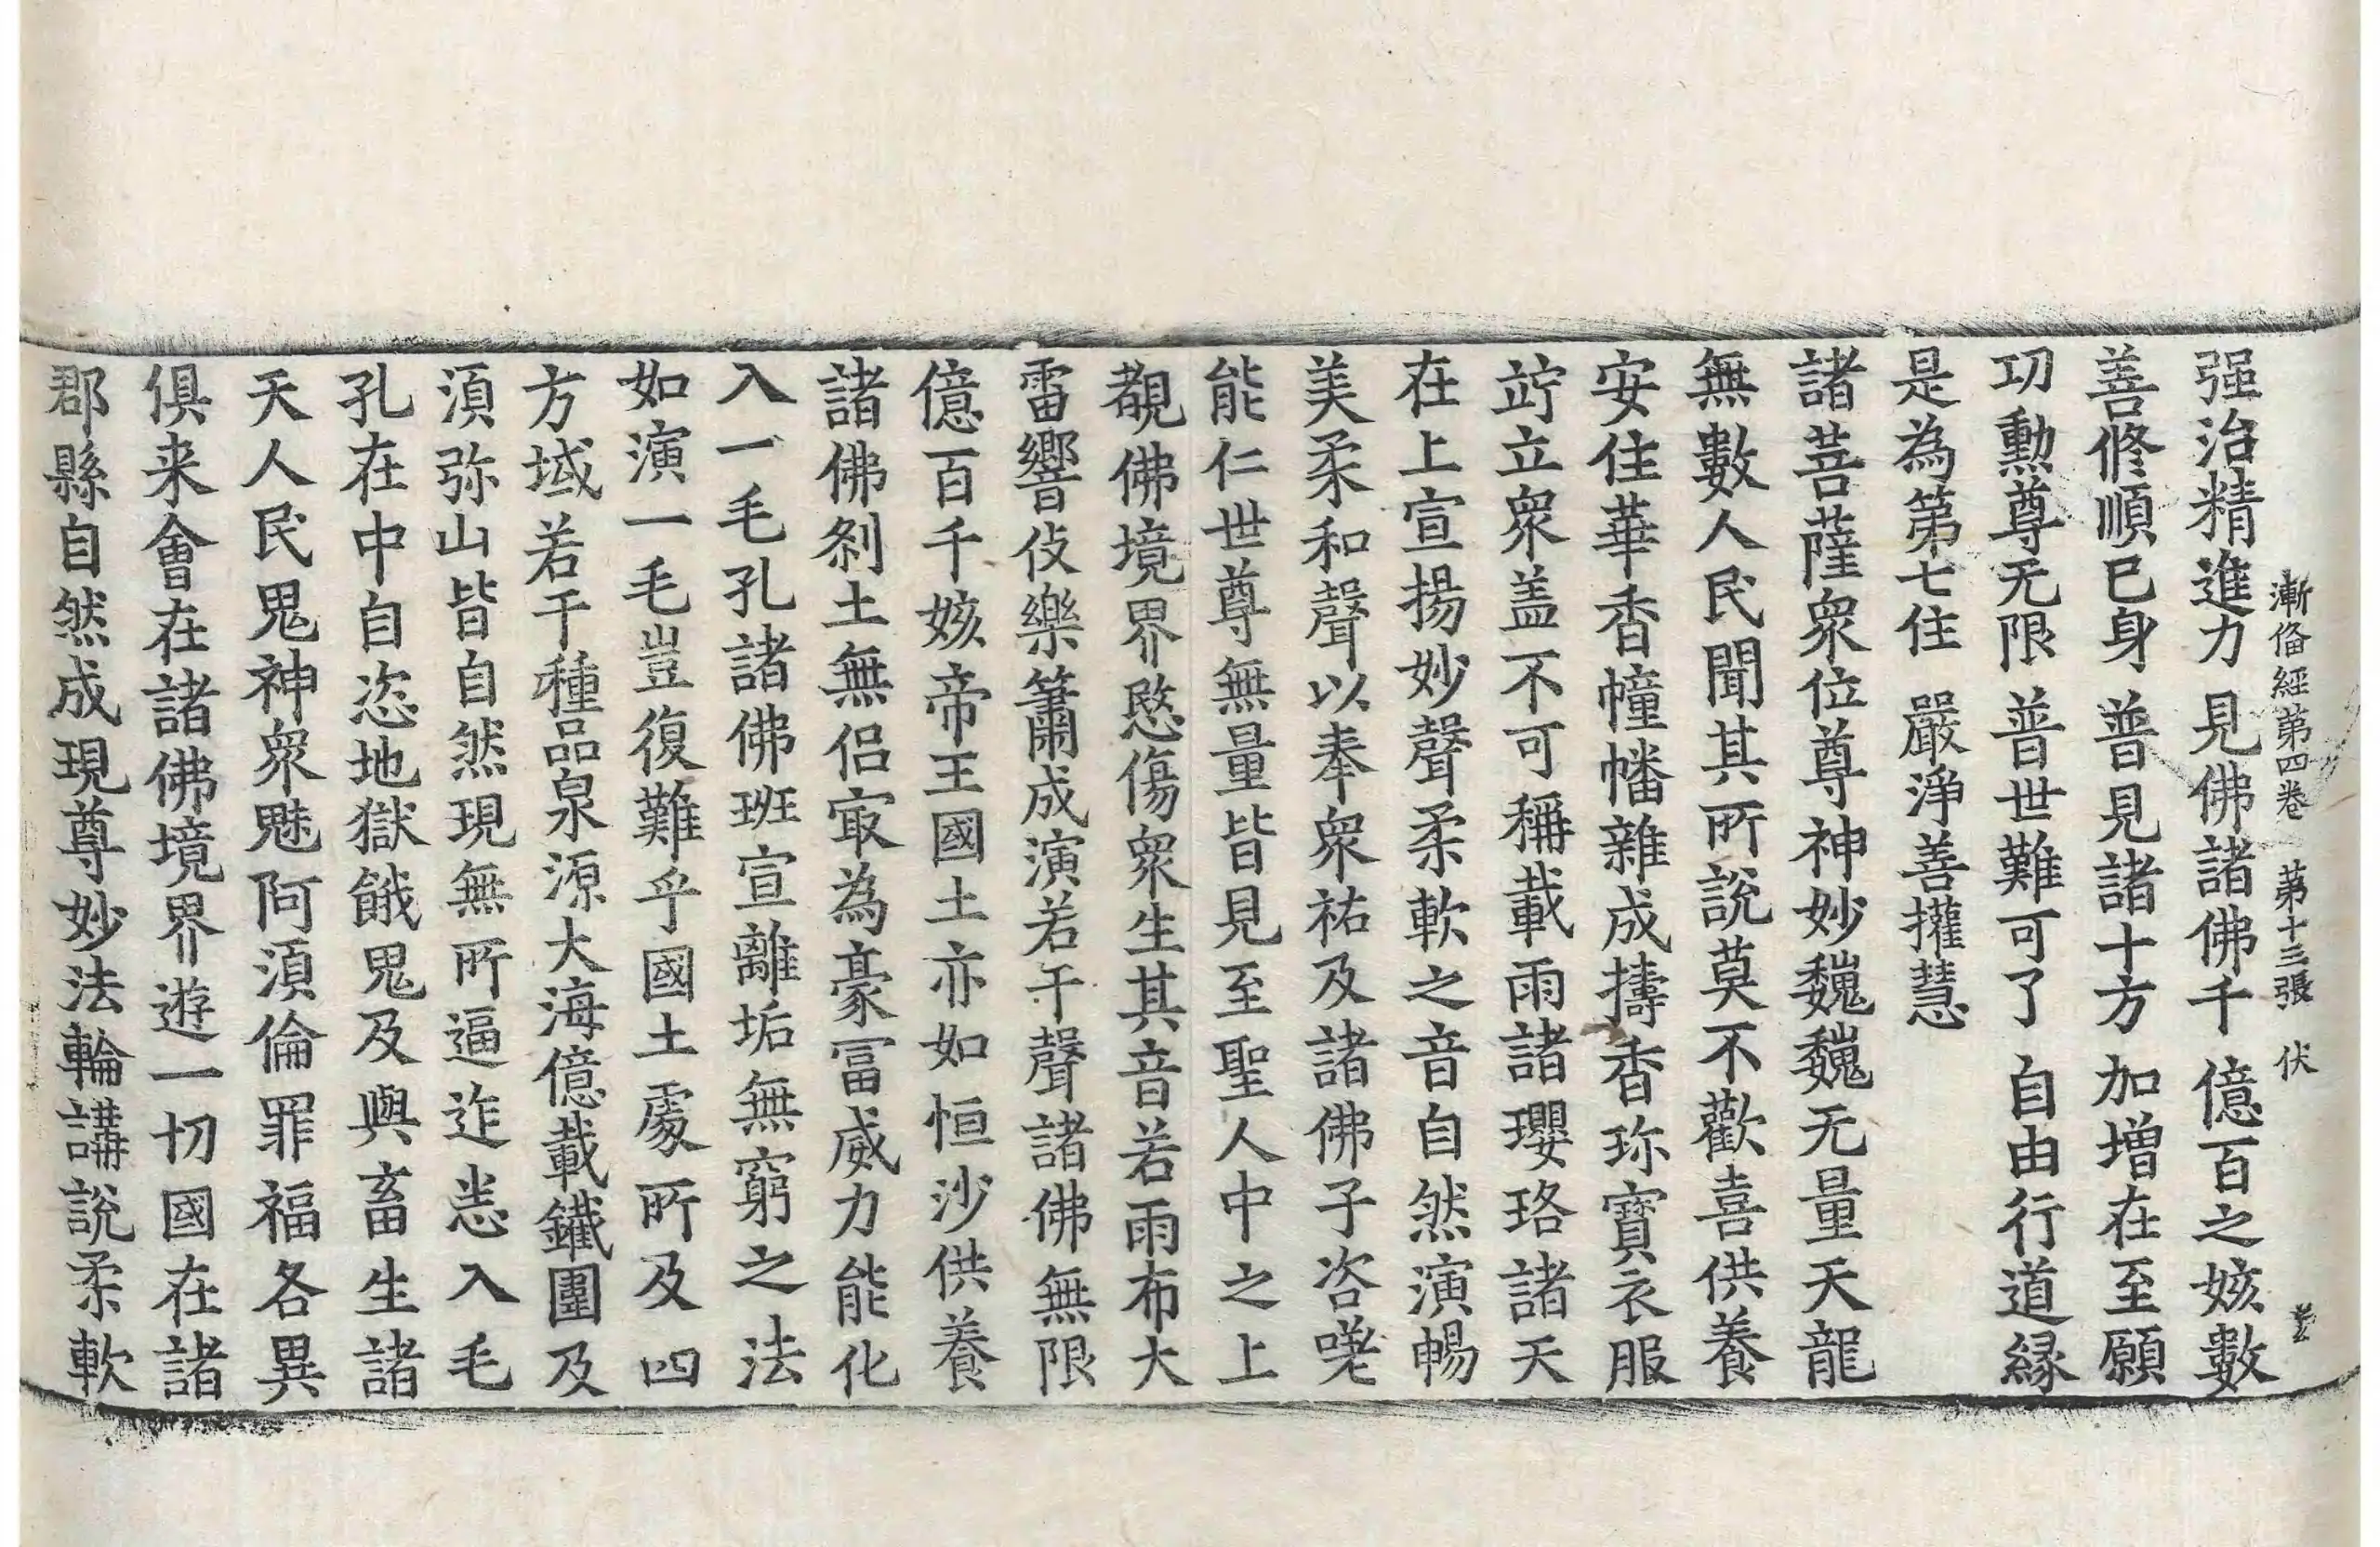 漸俻經第四卷 第十三張 伏
强治精進力 見佛諸佛千 億百之姟數
善修順已身 普見諸十方 加增在至願
功勳尊无限 普世難可了 自由行道縁
是為第七住 嚴淨善㩲慧
諸菩薩衆位尊神妙巍巍无量天龍
無數人民聞其所說莫不歡喜供養
安住華香幢幡雜成擣香珎寶衣服
竚立衆盖不可稱載雨諸瓔珞諸天
在上宣揚妙聲柔軟之音自然演暢
美柔和聲以奉衆祐及諸佛子咨嗟
能仁世尊無量皆見至聖人中之上
覩佛境界愍傷衆生其音若雨布大
雷響伎樂簫成演若干聲諸佛無限
億百千姟帝王國土亦如恒沙供養
諸佛刹土無侣㝡為豪冨威力能化
入一毛孔諸佛班宣離垢無窮之法
如演一毛豈復難乎國土處所及四
方域若干種品泉源大海億載鐵圍及
湏弥山皆自然現無所逼迮悉入毛
孔在中自恣地獄餓鬼及與畜生諸
天人民鬼神衆魅阿湏倫罪福各異
俱来會在諸佛境界遊一切國在諸
郡縣自然成現尊妙法輪講說柔軟